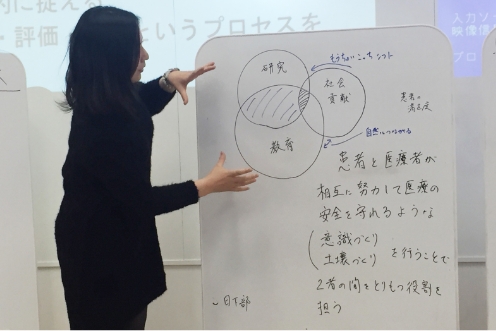 的に捉える
・評価
というプロセスを
入力ソ
映像信
プロ
研究
社会
貢献
教育
自然につながる
患者の
満足度
患者と医療者が
相互に努力して医療の
安全を守れるような
意識づくり
土壌づくり
を行うことで
2者の間をとりもつ役割を
担う